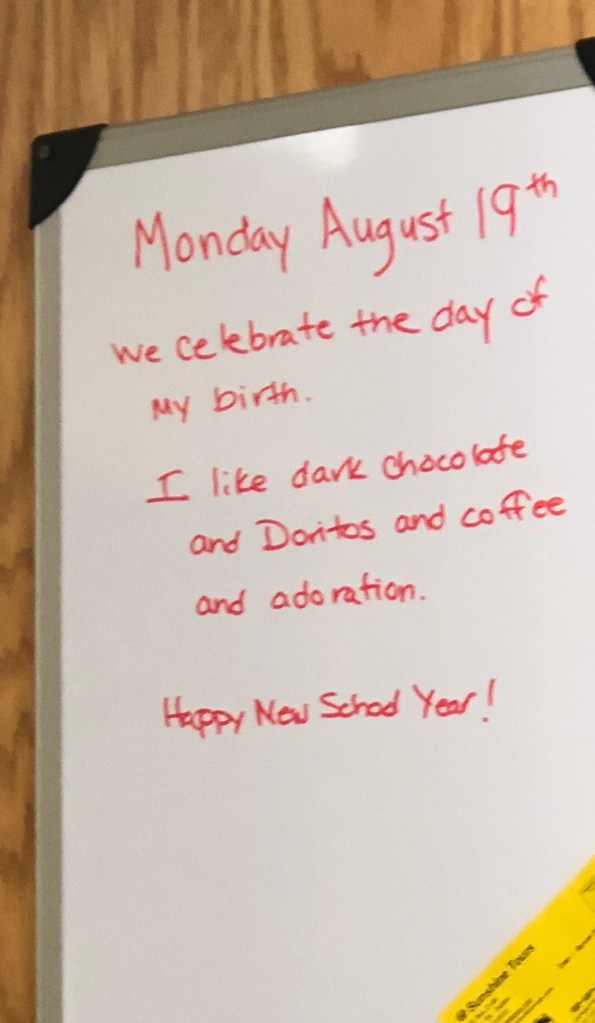 Monday August 19th
We celebrate the day of
my birth.
I like dark chocolate
and Doritos and coffee
and adoration.
Happy New School Year!
Sunshine Tours